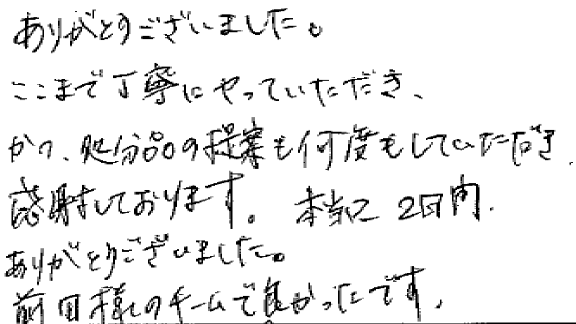 ありがとうございました。
ここまで丁寧にやっていただき、
かつ、処分品の提案も何度もしていただき、
感謝しております。本当に2日間、
ありがとうございました。
前田様のチームで良かったです。